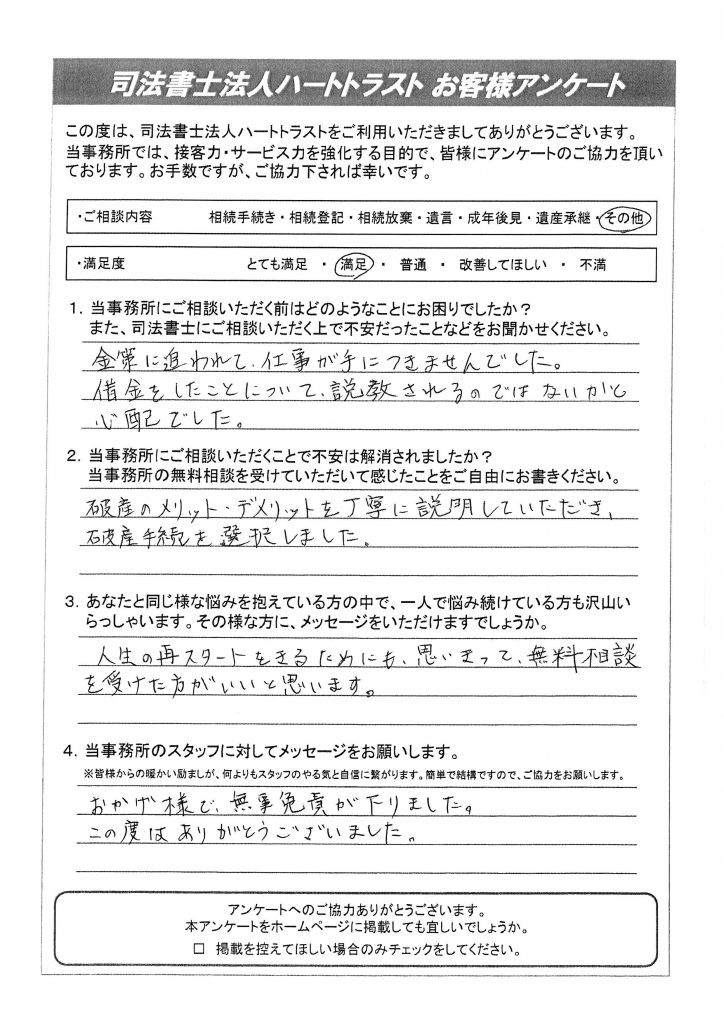 司法書士法人ハートトラスト お客様アンケート
この度は、司法書士法人ハートトラストをご利用いただきましてありがとうございます。
当事務所では、接客力・サービス力を強化する目的で、皆様にアンケートのご協力を頂い
ております。お手数ですが、ご協力下されば幸いです。
・ご相談内容 相続手続き・相続登記・相続放棄・遺言・成年後見・遺産承継・その他
・満足度 とても満足 ・ 満足 ・ 普通 ・ 改善してほしい ・ 不満
1. 当事務所にご相談いただく前はどのようなことにお困りでしたか？
また、司法書士にご相談いただく上で不安だったことなどをお聞かせください。
金策に追われて、仕事が手につきませんでした。
借金をしたことについて、説教されるのではないかと
心配でした。
2. 当事務所にご相談いただくことで不安は解消されましたか？
当事務所の無料相談を受けていただいて感じたことをご自由にお書きください。
破産のメリット・デメリットを丁寧に説明していただき、
破産手続を選択しました。
3. あなたと同じ様な悩みを抱えている方の中で、一人で悩み続けている方も沢山い
らっしゃいます。その様な方に、メッセージをいただけますでしょうか。
人生の再スタートをきるためにも、思いきって、無料相談
を受けた方がいいと思います。
4. 当事務所のスタッフに対してメッセージをお願いします。
※皆様からの暖かい励ましが、何よりもスタッフのやる気と自信に繋がります。簡単で結構ですので、ご協力をお願いします。
おかげ様で、無事免責が下りました。
この度はありがとうございました。
アンケートへのご協力ありがとうございます。
本アンケートをホームページに掲載しても宜しいでしょうか。
□ 掲載を控えてほしい場合のみチェックをしてください。